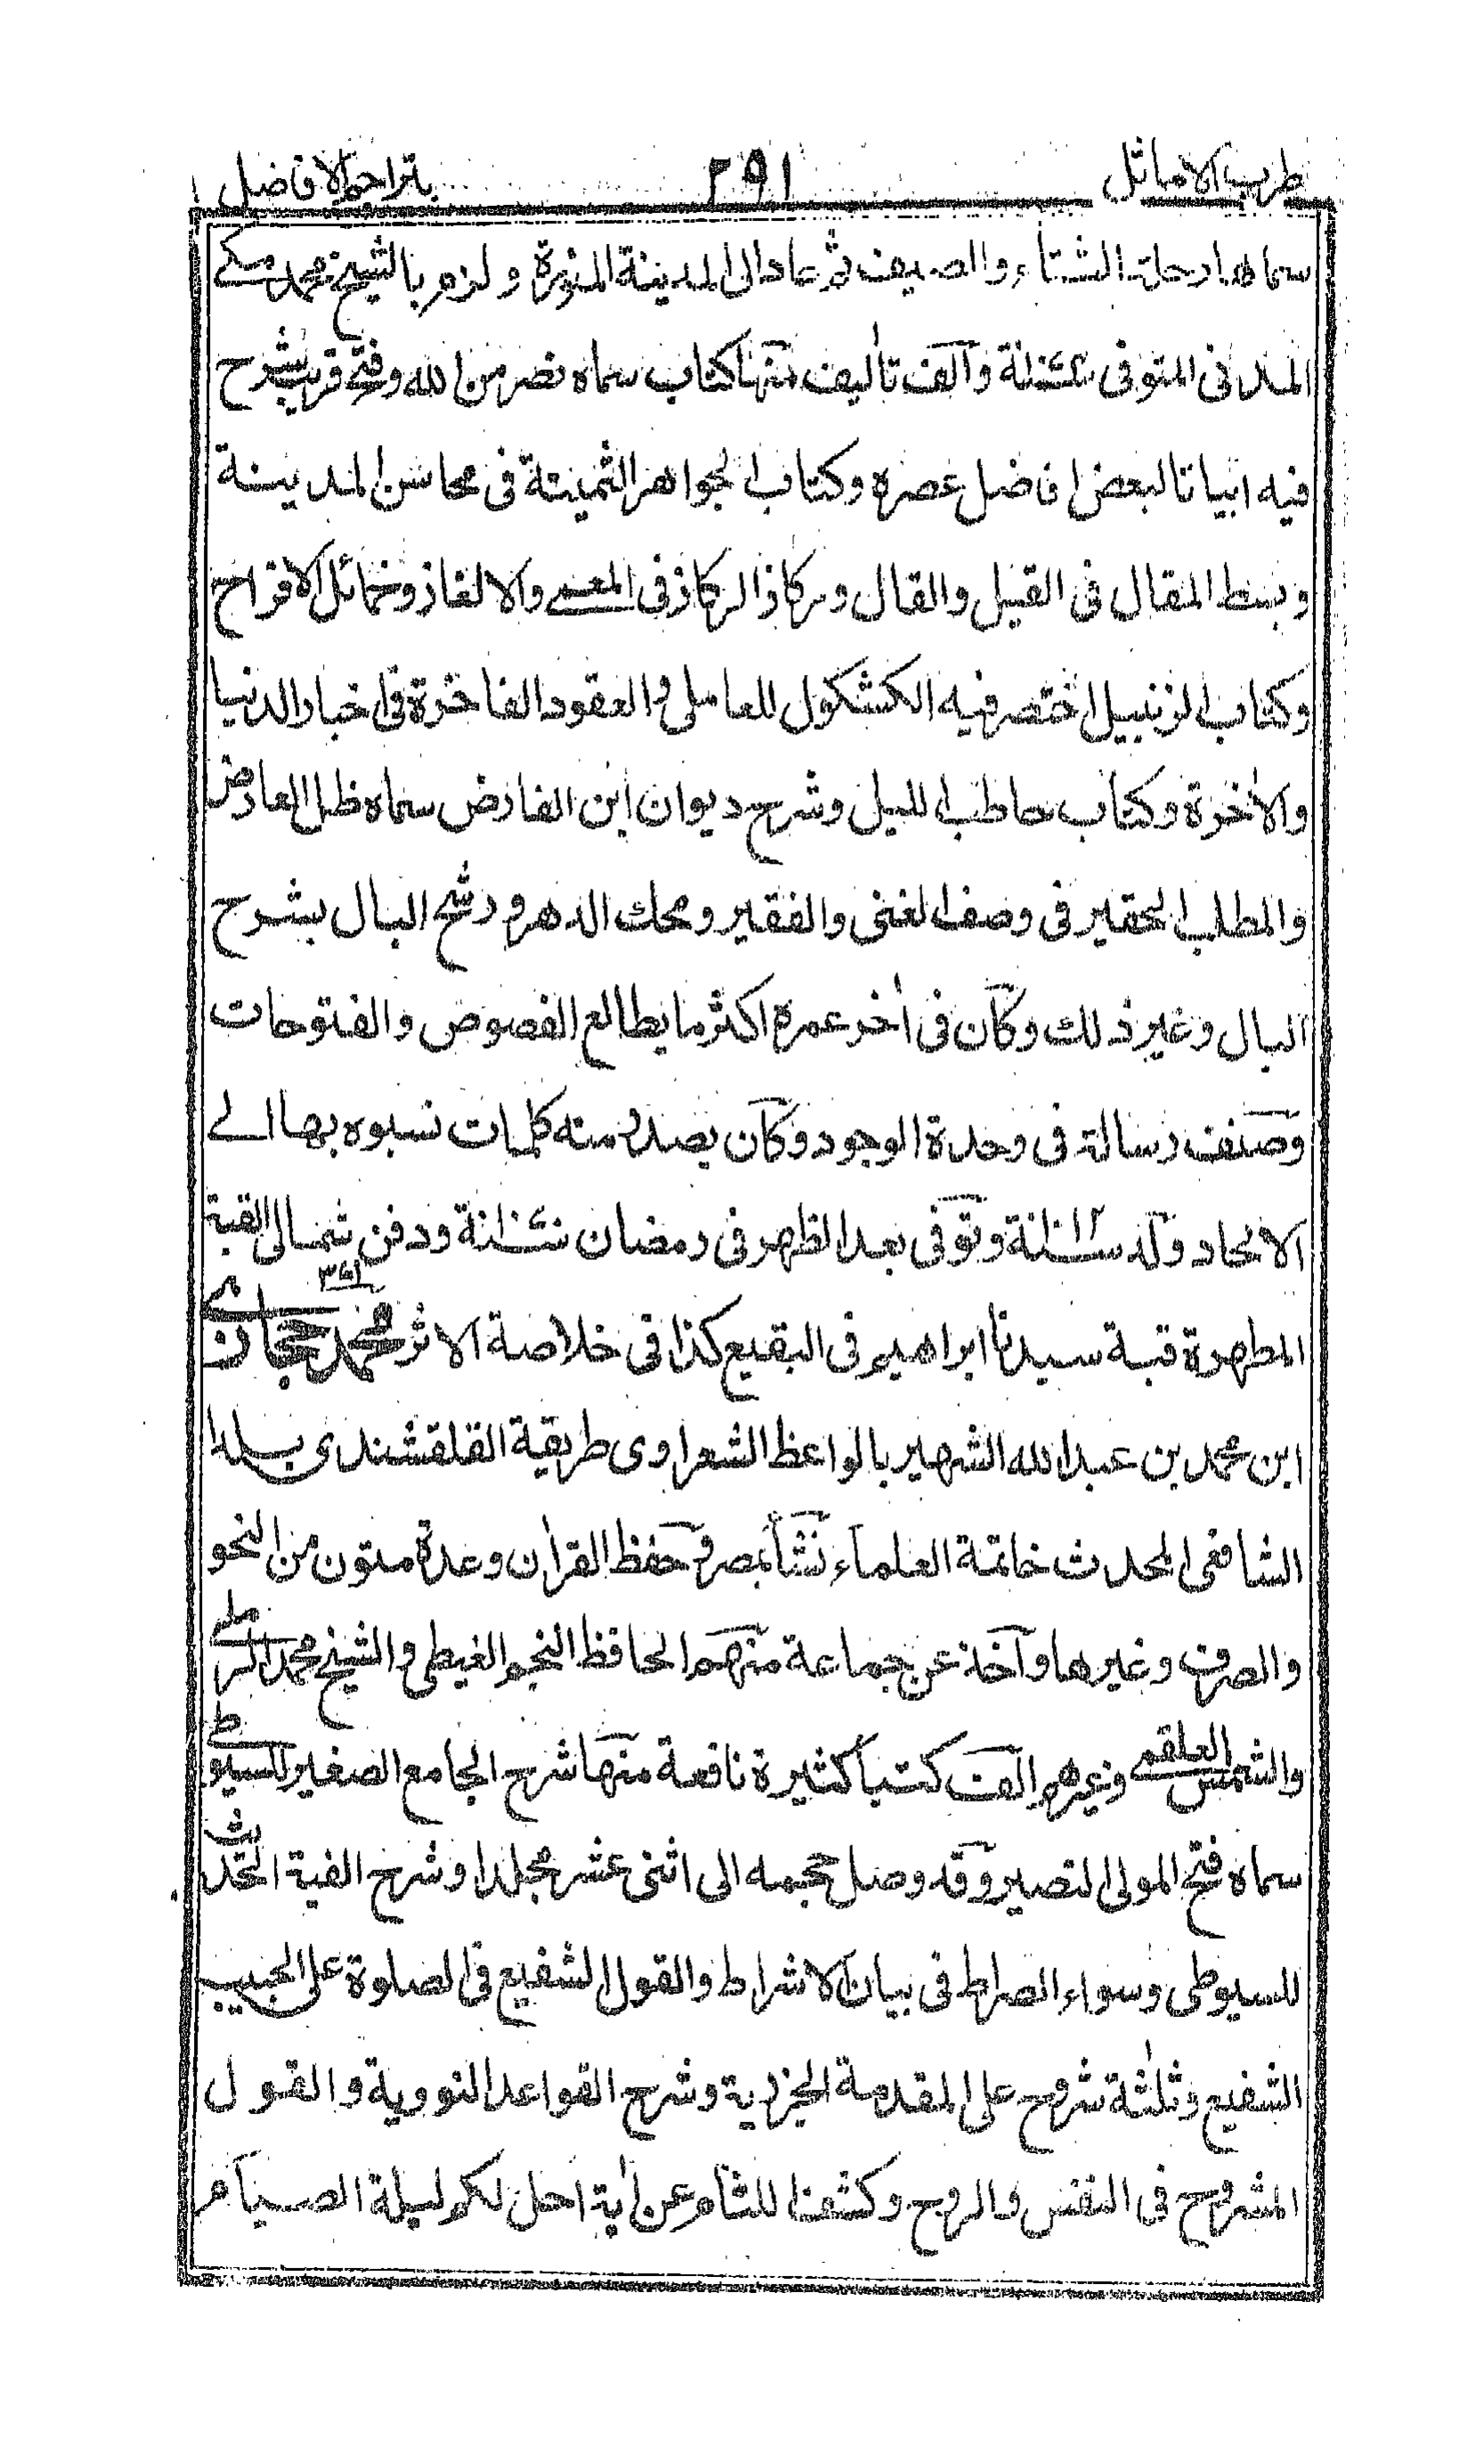 طرب الاماثل ٢٩١ بتراجم الافاضل
سماها رحلة الشتاء والصيف ثم عاد الى المدينة المنورة ولزم بالشيخ محمد مكے
المدنى المتوفى وآلف تاليف منها كتاب سماه نصر من الله وفتح قريب شرح
فيه ابياتا لبعض افاضل عصره وكتاب الجواهر الثمينة فى محاسن المدينة
وبسط المقال فى القيل والقال وركاز الركاز فى المعمے والالغاز وخمائل الافراح
وكتاب الزنبيل اختصر فيه الكشكول للعاملى والعقود الفاخرة فى اخبار الدنيا
والاٰخرة وكتاب حاطب الليل وشرح ديوان ابن الفارض سماه ظل العارض
والمطلب الحقير فى وصف الغنى والفقير ومحك الدهر ورشح البال بشرح
البال وغير ذلك وكان فى اٰخر عمره اكثر ما يطالع الفصوص والفتوحات
وصنف رسالة فى وحدة الوجود وكان يصدر منه كلمات نسبوه بها الے
الالحاد ولد وتوفى بعد الظهر فى رمضان ودفن شمالى القبة
المطهرة قبة سيدنا ابراهيم فى البقيع كذا فى خلاصة الاثر ٣٦١ محمد حجازى
ابن محمد بن عبد الله الشهير بالواعظ الشعراوى طريقية القلقشندى بلدا
الشافعى المحدث خاتمة العلماء نشأ بمصر وحفظ القراٰن وعدة متون من النحو
والصرف وغيرها وآخذ عن جماعة منهم الحافظ النجم الغيطى والشيخ محمد الرملے
والشمس العلقمے وغيرهم الف كتبا كثيرة نافعة منها شرح الجامع الصغير للسيوطے
سماه فتح المولى النصير وقد وصل حجمه الى اثنى عشر مجلدا وشرح الفية الحديث
للسيوطى وسواء الصراط فى بيان الاشراط والقول الشفيع فى الصلوة على الحبيب
الشفيع وثلٰثة شروح على المقدمة الجزرية وشرح القواعد النووية والقول
المشروح فى النفس والروح وكشف اللثام عن اٰية احل لكم ليلة الصيام